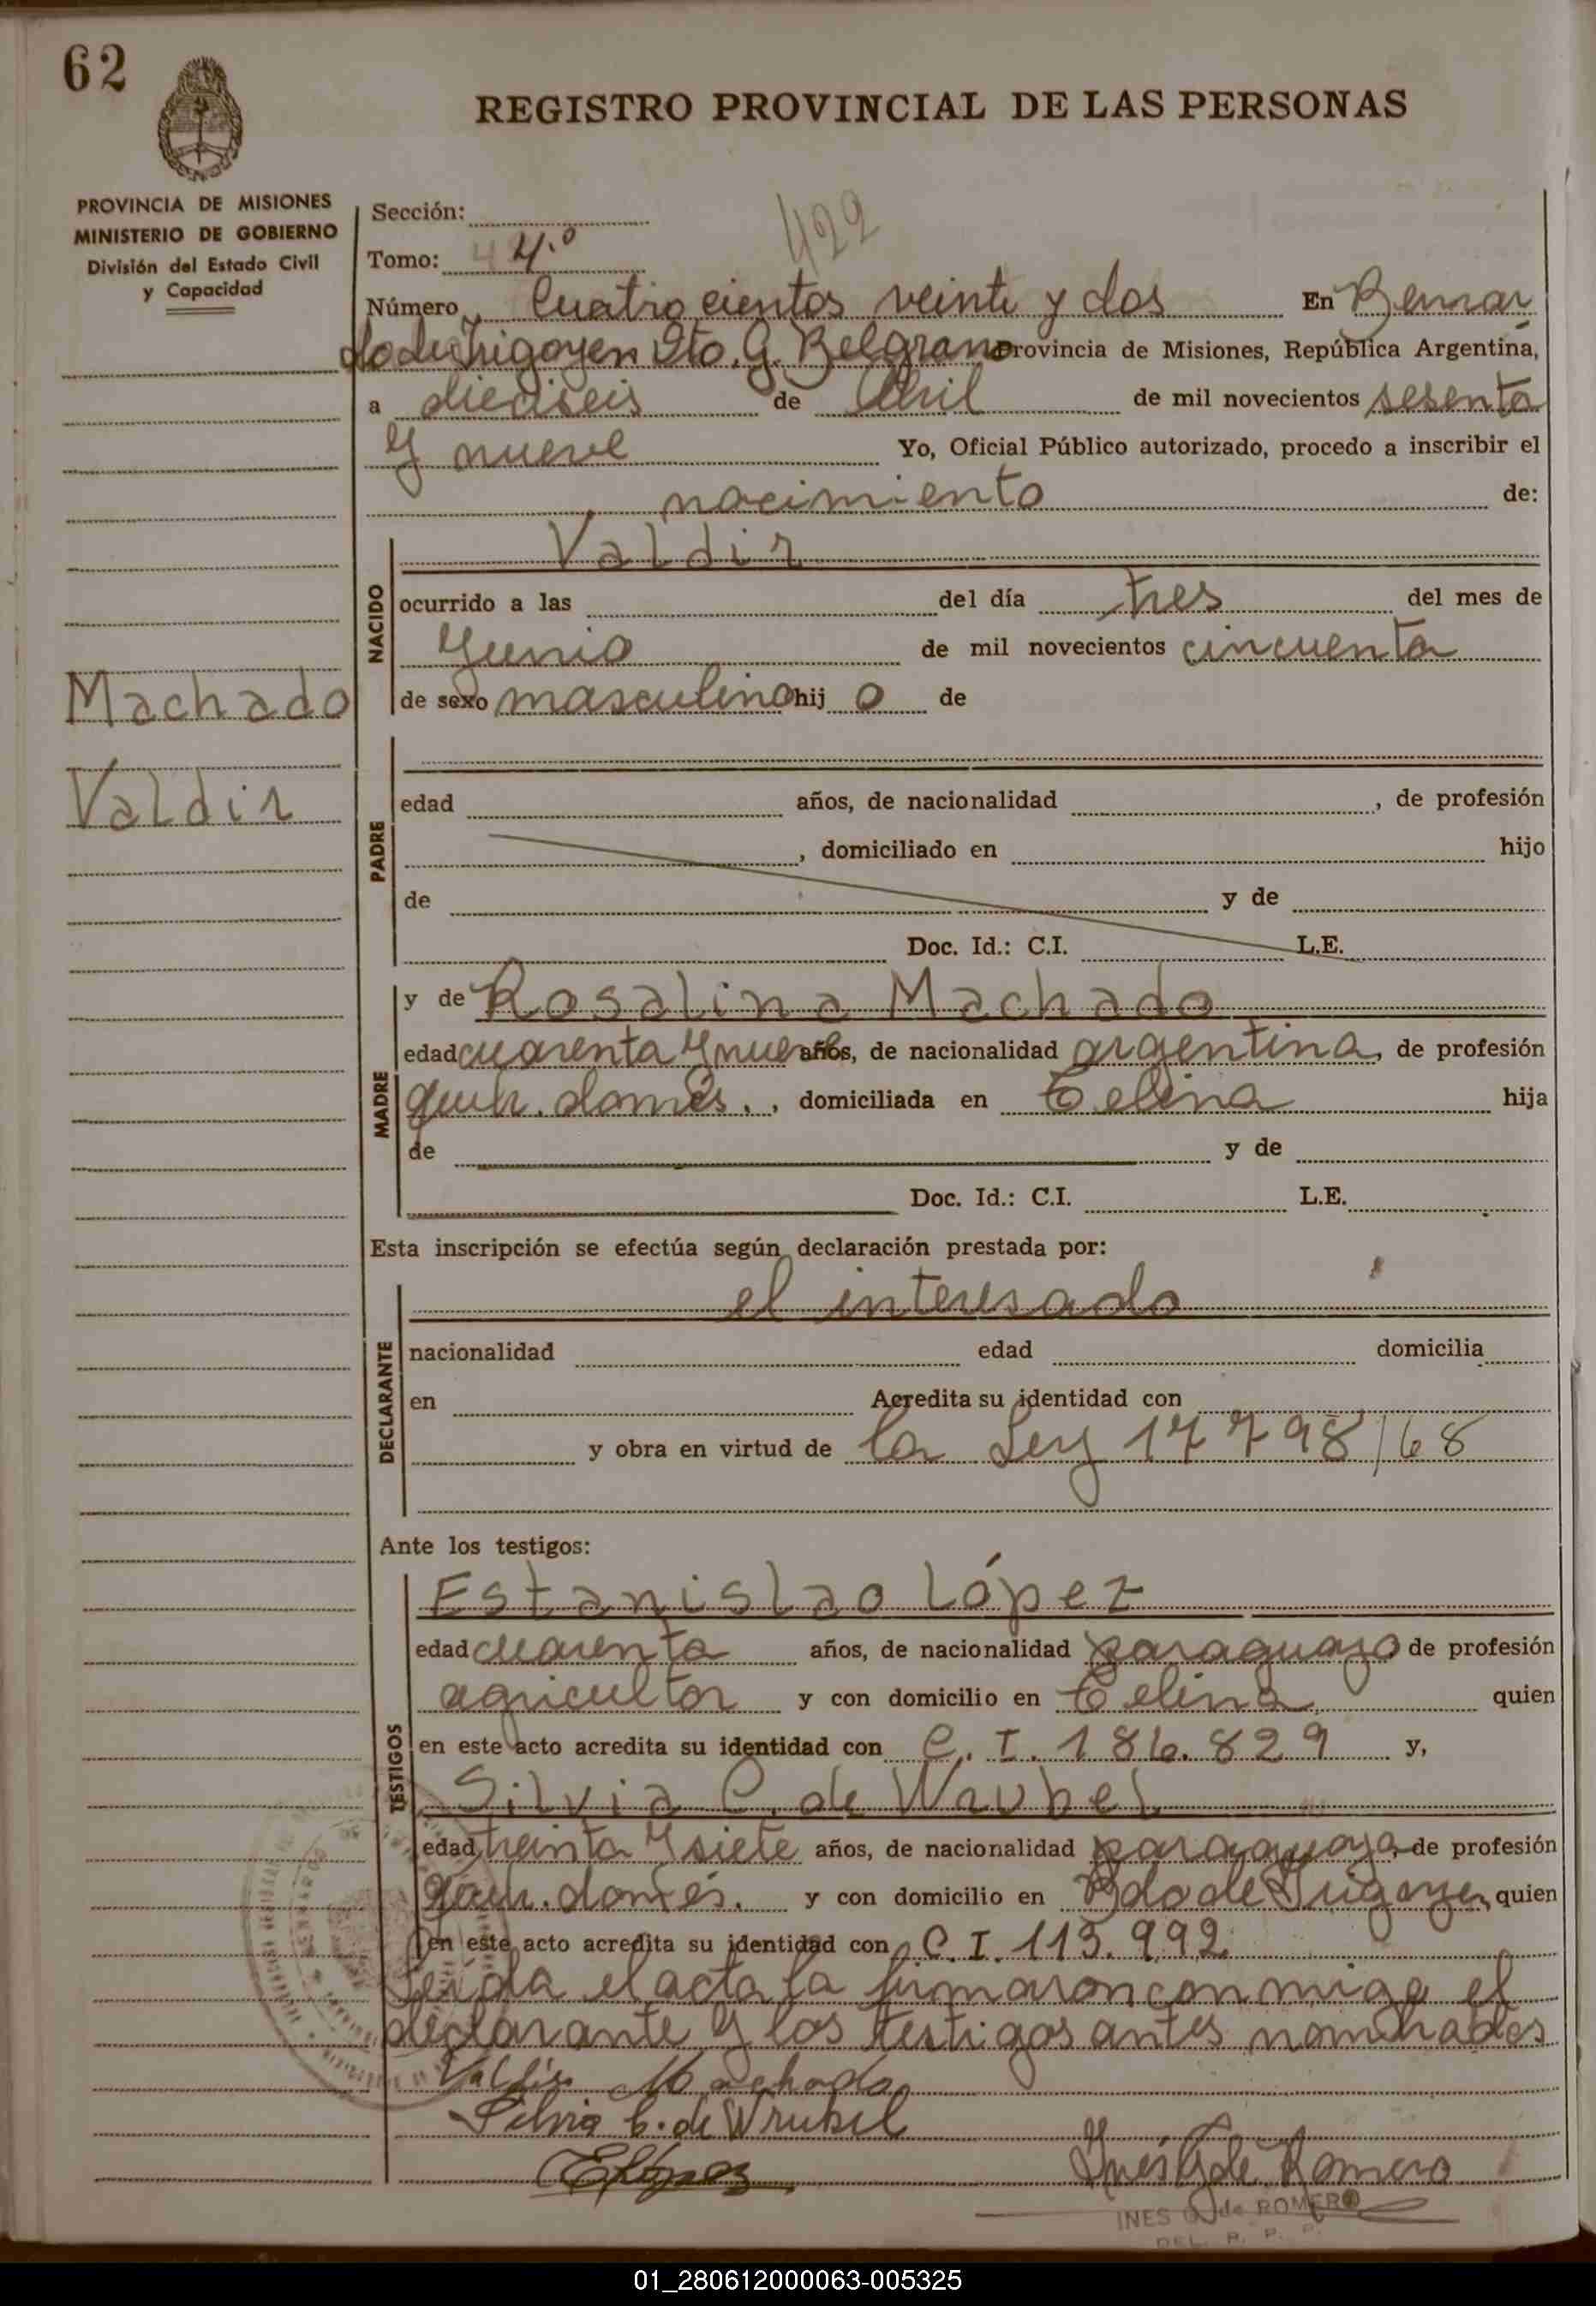 62
REGISTRO PROVINCIAL DE LAS PERSONAS
PROVINCIA DE MISIONES
MINISTERIO DE GOBIERNO
División del Estado Civil
y Capacidad
Sección:
422
Tomo: 4 4.º
Número Cuatro cientos veinte y dos En Bernar
do de Irigoyen Dto. G. Belgrano Provincia de Misiones, República Argentina,
a dieciseis de Abril de mil novecientos sesenta
y nueve Yo, Oficial Público autorizado, procedo a inscribir el
nacimiento de:
NACIDO
Valdir
ocurrido a las del día tres del mes de
Junio de mil novecientos cincuenta
de sexo masculino hij o de
Machado
Valdir
PADRE
edad años, de nacionalidad , de profesión
, domiciliado en hijo
de y de
Doc. Id.: C.I. L.E.
MADRE
y de Rosalina Machado
edad cuarenta y nueve años, de nacionalidad argentina, de profesión
queh. domés. , domiciliada en Celina hija
de y de
Doc. Id.: C.I. L.E.
Esta inscripción se efectúa según declaración prestada por:
DECLARANTE
el interesado
nacionalidad edad domicilia
en Acredita su identidad con
y obra en virtud de la Ley 17798/68
Ante los testigos:
TESTIGOS
Estanislao López
edad cuarenta años, de nacionalidad paraguayo de profesión
agricultor y con domicilio en Celina quien
en este acto acredita su identidad con C. I. 186.829 y,
Silvia C. de Wrubel
edad treinta y siete años, de nacionalidad paraguaya de profesión
queh. domés. y con domicilio en Bdo de Irigoyen quien
en este acto acredita su identidad con C. I. 113.992
Leída el acta la firmaron conmigo el
declarante y los testigos antes nombrados
Valdir Machado
Silvia C. de Wrubel
E López
Inés G de Romero
INES G. de ROMERO
DEL. R. P. P.
01_280612000063-005325